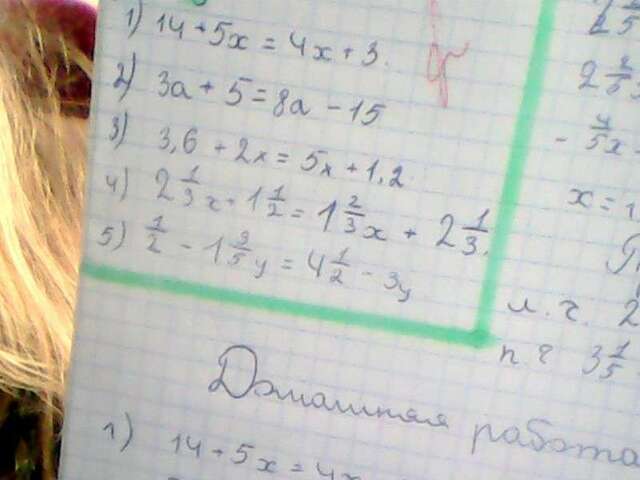 1) 14 + 5x = 4x + 3.
2) 3a + 5 = 8a - 15
3) 3,6 + 2x = 5x + 1,2
4) 2 1/3 x + 1 1/2 = 1 2/3 x + 2 1/3.
5) 1/2 - 1 3/5 y = 4 1/2 - 3y
25
- 4/5 x -
x =
л. ч. 2
п. ч 3 1/5
Домашняя работа
1) 14 + 5x = 4x